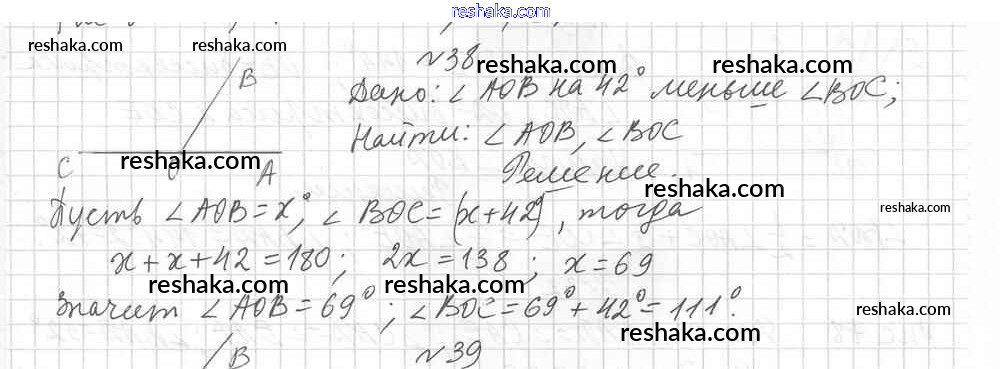 reshaka.com
reshaka.com
reshaka.com
№38
reshaka.com
reshaka.com
B
Дано: ∠AOB на 42° меньше ∠BOC;
Найти: ∠AOB, ∠BOC
C O A
reshaka.com
Решение.
reshaka.com
Пусть ∠AOB = x°, ∠BOC = (x+42°), тогда
reshaka.com
x + x + 42 = 180; 2x = 138; x = 69
reshaka.com
reshaka.com
Значит ∠AOB = 69°; ∠BOC = 69° + 42° = 111°.
reshaka.com
B
№39